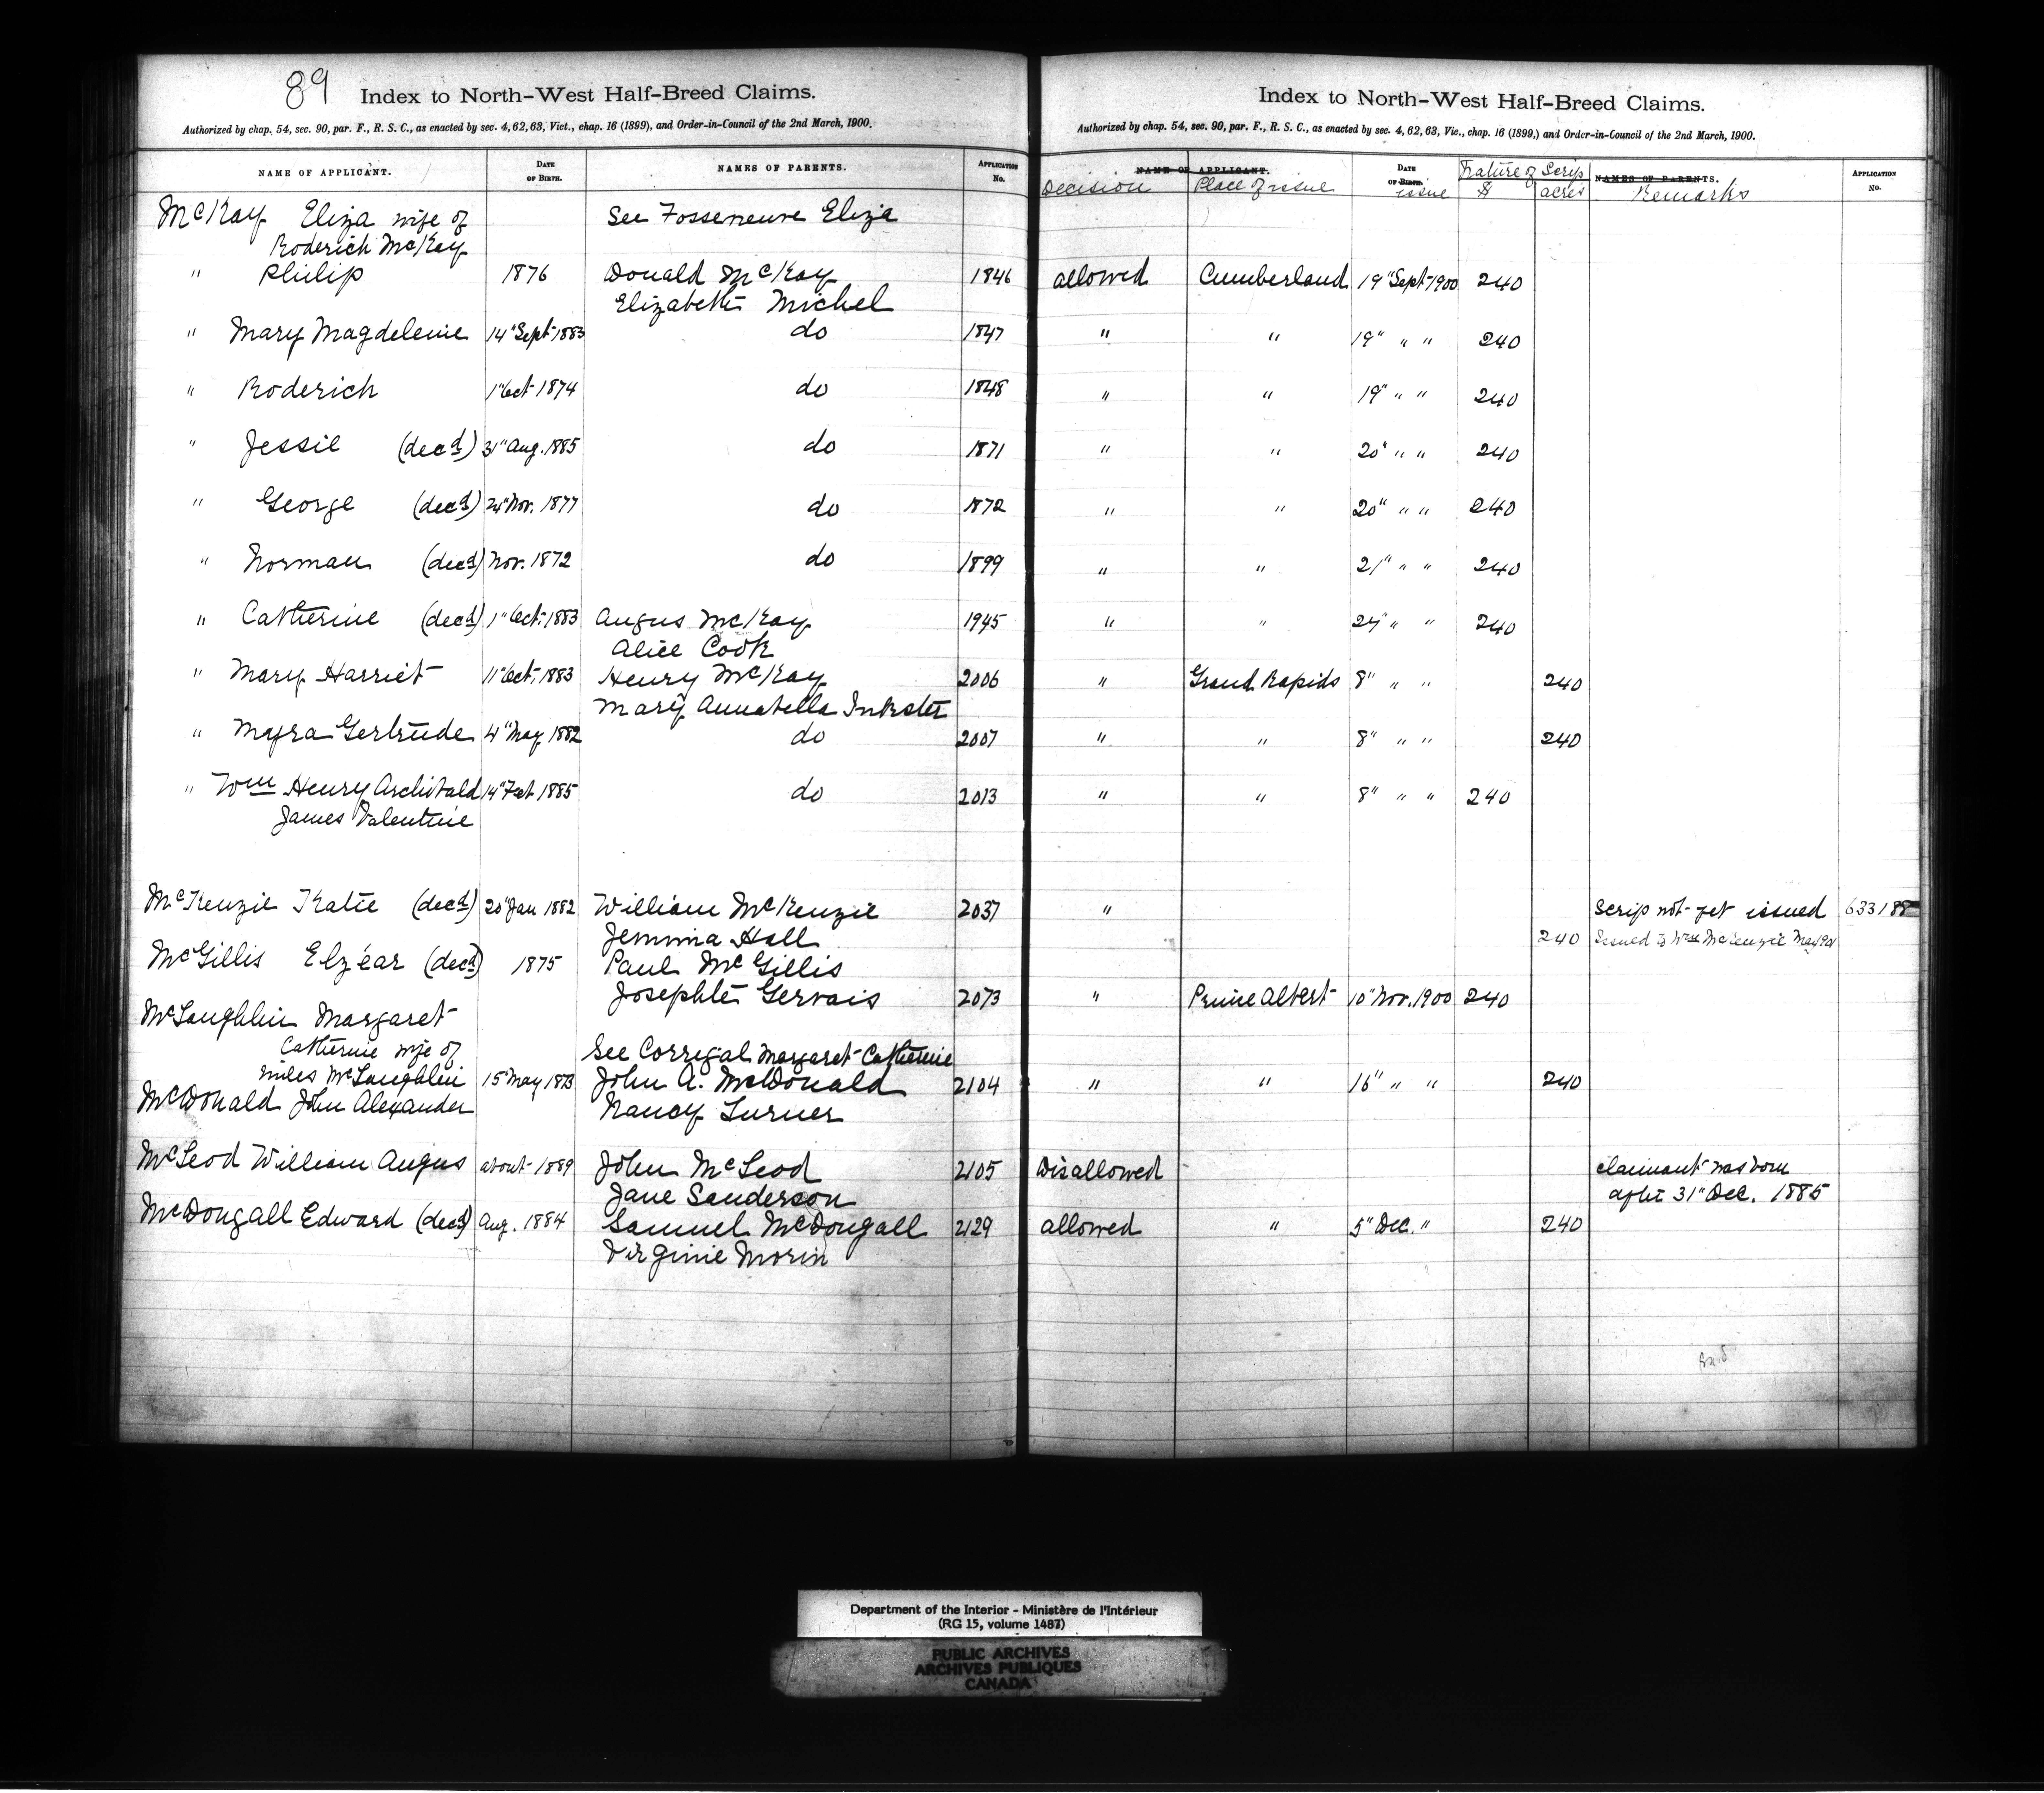 89
Index to North-West Half-Breed Claims.
Authorized by chap. 54, sec. 90, par. F., R. S. C., as enacted by sec. 4, 62, 63, Vict., chap. 16 (1899), and Order-in-Council of the 2nd March, 1900.
NAME OF APPLICANT. DATE OF BIRTH. NAMES OF PARENTS. APPLICATION No.
McKay Eliza wife of See Fosseneuve Eliza
Roderich McKay
" Philip 1876 Donald McKay 1846
Elizabeth Michel
" Mary Magdeleine 14" Sept 1883 do 1847
" Roderich 1" Oct 1874 do 1848
" Jessie (decd) 31" Aug. 1885 do 1871
" George (decd) Nov. 1877 do 1872
" Norman (decd) Nov. 1872 do 1899
" Catherine (decd) 1" Oct. 1883 Angus McKay 1945
Alice Cook
" Mary Harriet 11" Oct. 1883 Henry McKay 2006
Mary Annabella Inkster
" Gertrude 4" May 1882 do 2007
" Wm Henry Archibald 14" Feb 1885 do 2013
James Valentine
McKenzie Katie (decd) 20" Jan 1882 William McKenzie 2037
Jemima Hall
McGillis Elzéar (decd) 1875 Paul McGillis
Josephte Gervais 2073
McLaughlin Margaret
Catherine wife of See Corrigal Margaret Catherine
Miles McLaughlin 15" May 1873 John A. McDonald 2104
McDonald John Alexander Nancy Turner
McLeod William Angus about 1889 John McLeod 2105
Jane Sanderson
McDougall Edward (decd) Aug. 1884 Samuel McDougall 2129
Virginie Morin
Index to North-West Half-Breed Claims.
Authorized by chap. 54, sec. 90, par. F., R. S. C., as enacted by sec. 4, 62, 63, Vic., chap. 16 (1899,) and Order-in-Council of the 2nd March, 1900.
NAME OF APPLICANT. DATE OF BIRTH. Nature of Scrip NAMES OF PARENTS. APPLICATION No.
Decision Place of issue issue $ acres Remarks
allowed Cumberland 19" Sept 1900 240
" " 19" " " 240
" " 19" " " 240
" " 20" " " 240
" " 20" " " 240
" " 21" " " 240
" " 24" " " 240
" Grand Rapids 8" " " 240
" " 8" " " 240
" " 8" " " 240
" Scrip not yet issued 633188
240 Issued to Wm McKenzie May
" Prince Albert 10" Nov. 1900 240
" " 16" " " 240
Disallowed claimant was born
after 31" Dec. 1885
allowed " 5" Dec. " 240
Department of the Interior - Ministère de l'Intérieur
(RG 15, volume 1487)
PUBLIC ARCHIVES
ARCHIVES PUBLIQUES
CANADA